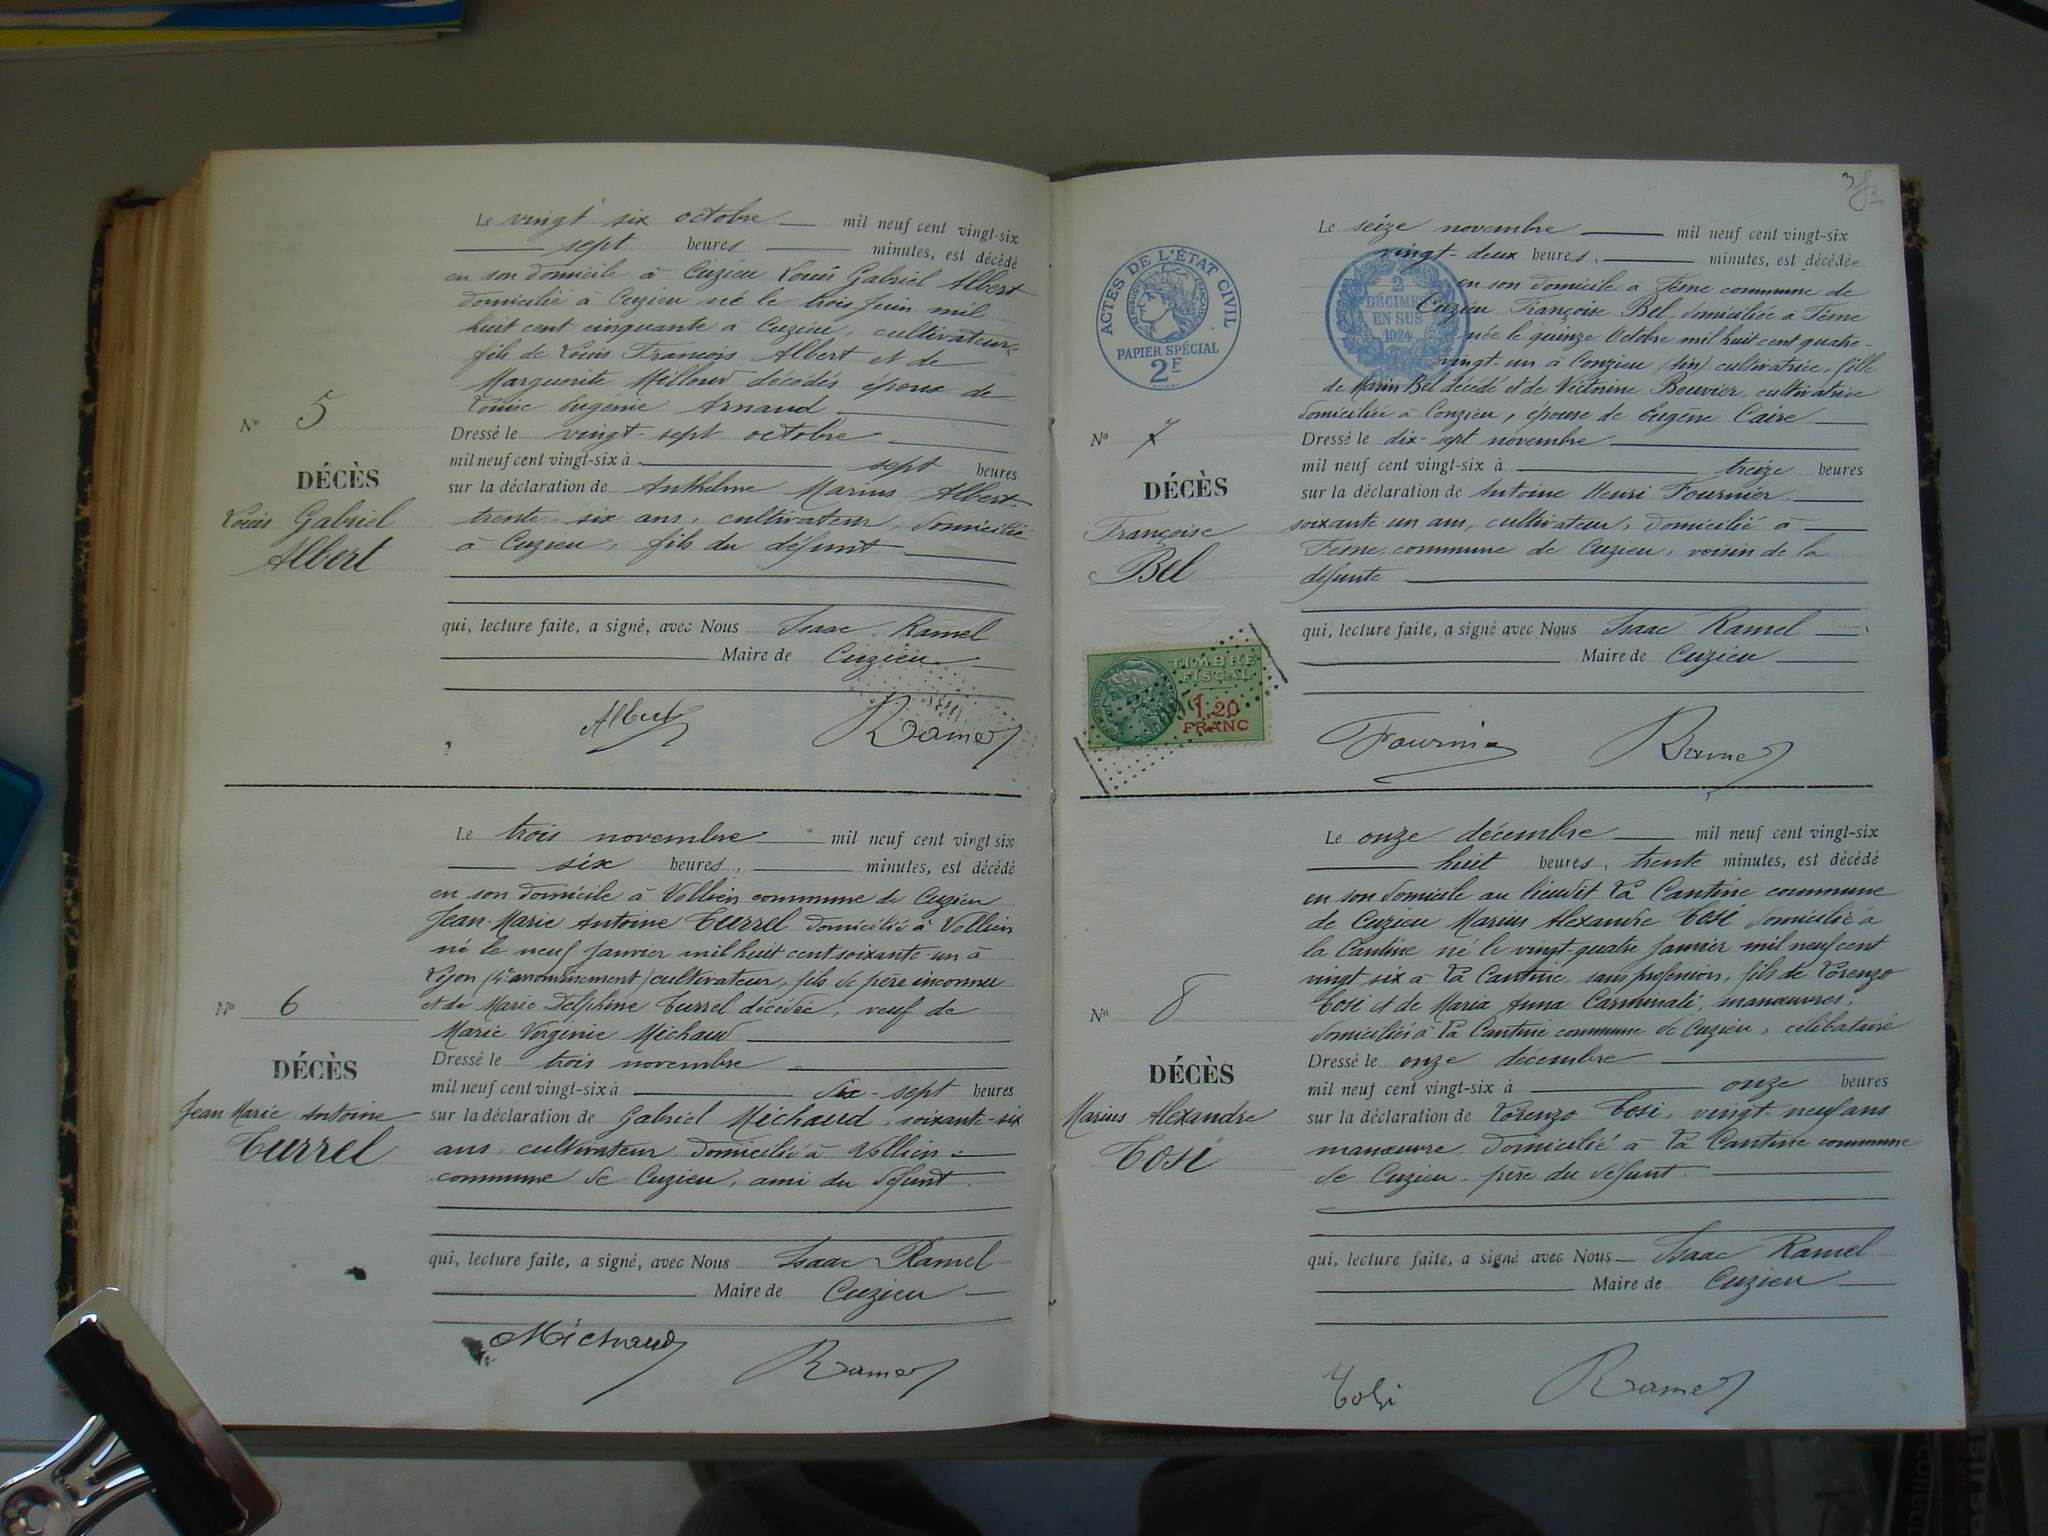 Le vingt six octobre mil neuf cent vingt-six
sept heures minutes, est décédé
en son domicile à Cuzieu Louis Gabriel Albert
domicilié à Cuzieu né le trois juin mil
huit cent cinquante à Cuzieu, cultivateur,
fils de Louis François Albert et de
Marguerite Milloud décédés époux de
Louise Eugénie Arnaud
N° 5
DÉCÈS
Louis Gabriel
Albert
Dressé le vingt-sept octobre
mil neuf cent vingt-six à sept heures
sur la déclaration de Anthelme Marius Albert
trente-six ans, cultivateur, domicilié
à Cuzieu, fils du défunt
qui, lecture faite, a signé, avec Nous Isaac Ramel
Maire de Cuzieu
Albert Ramel
Le trois novembre mil neuf cent vingt six
six heures, minutes, est décédé
en son domicile à Vollien commune de Cuzieu
Jean-Marie Antoine Turrel domicilié à Vollien
né le neuf janvier mil huit cent soixante-un à
Lyon (4e arrondissement) cultivateur, fils de père inconnu
et de Marie Delphine Turrel décédée, veuf de
Marie Virginie Michaud
N° 6
DÉCÈS
Jean Marie Antoine
Turrel
Dressé le trois novembre
mil neuf cent vingt-six à dix-sept heures
sur la déclaration de Gabriel Michaud, soixante-six
ans, cultivateur domicilié à Vollien
commune de Cuzieu, ami du défunt
qui, lecture faite, a signé, avec Nous Isaac Ramel
Maire de Cuzieu
Michaud
Ramel
ACTES DE L'ÉTAT CIVIL
PAPIER SPÉCIAL
2F
2
DÉCIMES
EN SUS
1924
Le seize novembre mil neuf cent vingt-six
vingt-deux heures, minutes, est décédée
en son domicile à Fesne commune de
Cuzieu Françoise Bel, domiciliée à Fesne
née le quinze Octobre mil huit cent quatre-
vingt-un à Conzieu (Ain) cultivatrice, fille
de Marin Bel décédé et de Victorine Bouvier cultivatrice
domiciliée à Conzieu, épouse de Eugène Caire
N° 7
DÉCÈS
Françoise
Bel
Dressé le dix-sept novembre
mil neuf cent vingt-six à treize heures
sur la déclaration de Antoine Henri Fournier
soixante-un ans, cultivateur, domicilié à
Fesne, commune de Cuzieu, voisin de la
défunte
qui, lecture faite, a signé avec Nous Isaac Ramel
Maire de Cuzieu
TIMBRE
FISCAL
1,20
FRANC
Fournier Ramel
Le onze décembre mil neuf cent vingt-six
huit heures, trente minutes, est décédé
en son domicile au lieudit La Cantine commune
de Cuzieu Marius Alexandre Tosi domicilié à
la Cantine né le vingt-quatre janvier mil neuf cent
vingt six à La Cantine, sans profession, fils de Lorenzo
Tosi et de Maria Anna Carminali, manœuvres,
domiciliés à La Cantine commune de Cuzieu, célibataire
N° 8
DÉCÈS
Marius Alexandre
Tosi
Dressé le onze décembre
mil neuf cent vingt-six à onze heures
sur la déclaration de Lorenzo Tosi, vingt-neuf ans
manœuvre, domicilié à La Cantine commune
de Cuzieu, père du défunt
qui, lecture faite, a signé avec Nous Isaac Ramel
Maire de Cuzieu
Tosi Ramel